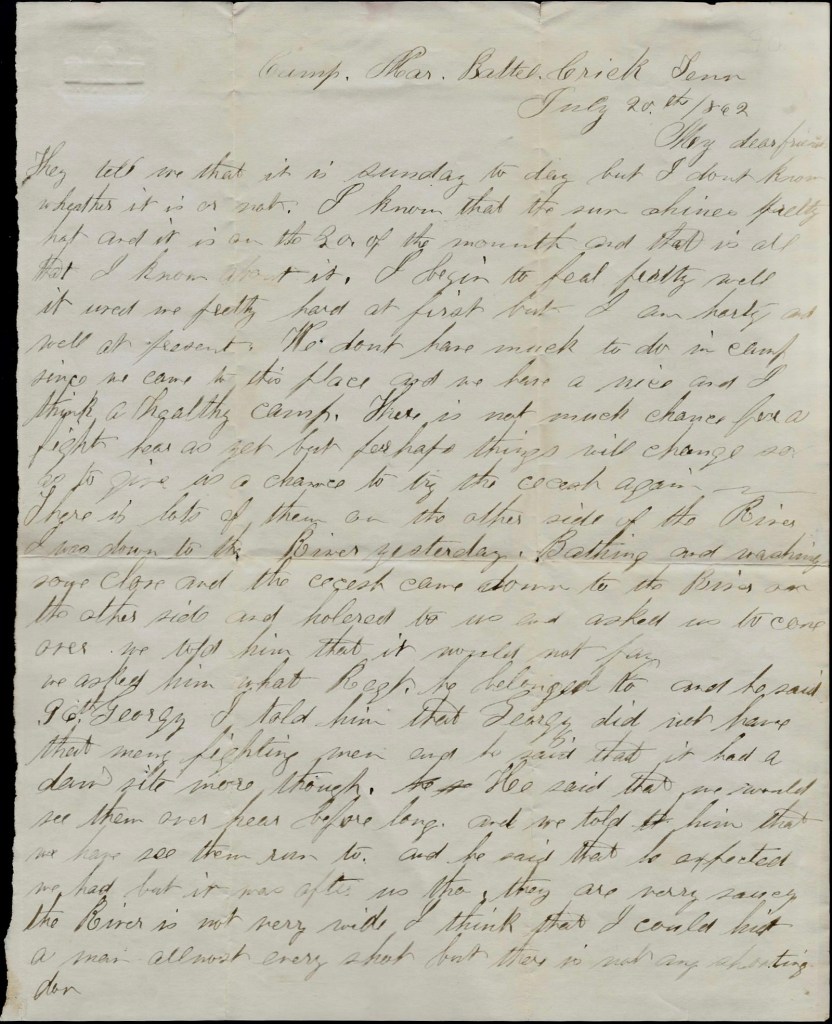 Camp. Near. Battel. Crick Tenn
July 20.th /862
My dear friend
They tell me that it is sunday to day but I dont know
whether it is or not. I know that the sun shines pretty
hot and it is on the 20 of the mounth and that is all
that I know about it. I begin to feal pretty well
it used me pretty hard at first but I am harty and
well at present. We dont have much to do in camp
since we came to this place and we have a nice and I
think a healthy camp. There is not much chance for a
fight hear as yet but perhaps things will change so
as to give us a chance to try the cecesh again
There is lots of them on the other side of the River
I was down to the River yesterday. Bathing and washing
some close and the cecesh came down to the River on
the other side and holered to us and asked us to come
over we told him that it would not pay
we asked him what Regt. he belonged to and he said
th Georgy I told him that Georgy did not have
that meny fighting men and he said that it had a
dam site more though. He said that we would
see them over hear before long. and we told him that
we have see them run to. and he said that he expected
we had but it was after us tho, they are verry saucy
the River is not very wide I think that I could hit
a man allmost every shot but there is not any shooting
don